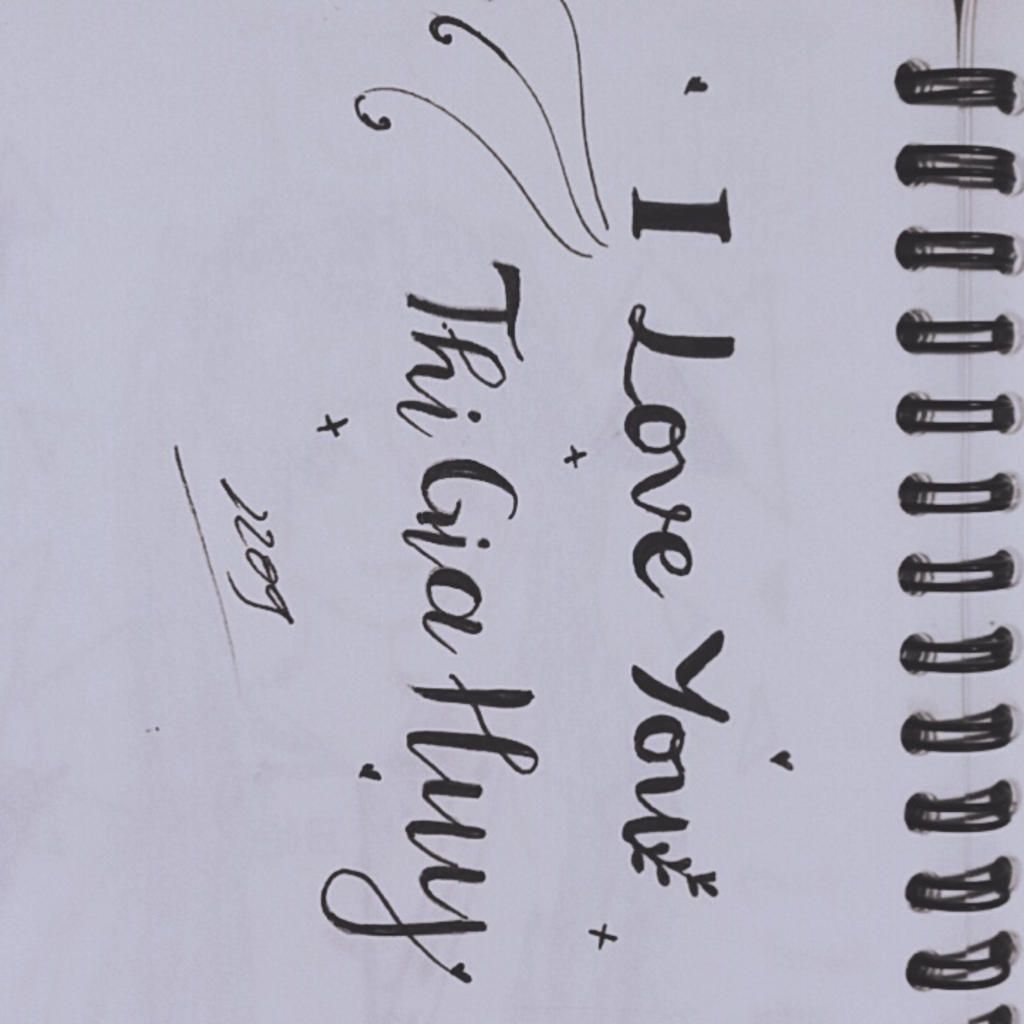 I Love You
Thi Gia Huy
2209